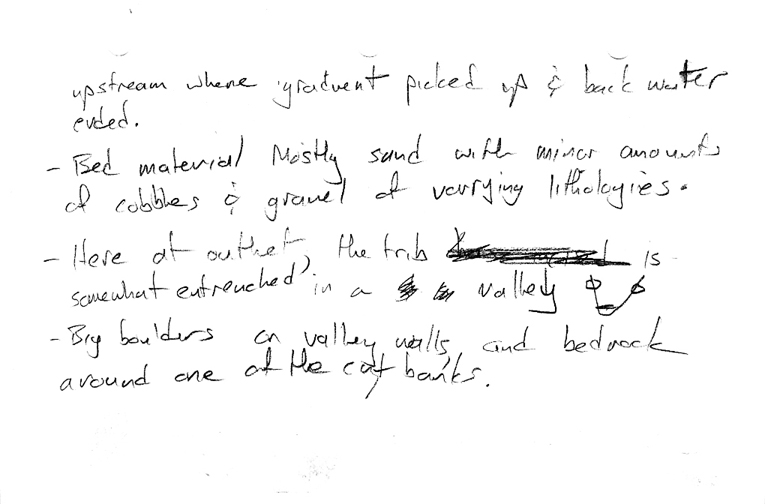 upstream where gradient picked up & back water
ended.
- Bed material Mostly sand with minor amounts
of cobbles & gravel of varying lithologies.
- Here at outlet, the trib is
somewhat entrenched in a valley
- Big boulders on valley walls, and bedrock
around one of the cut banks.